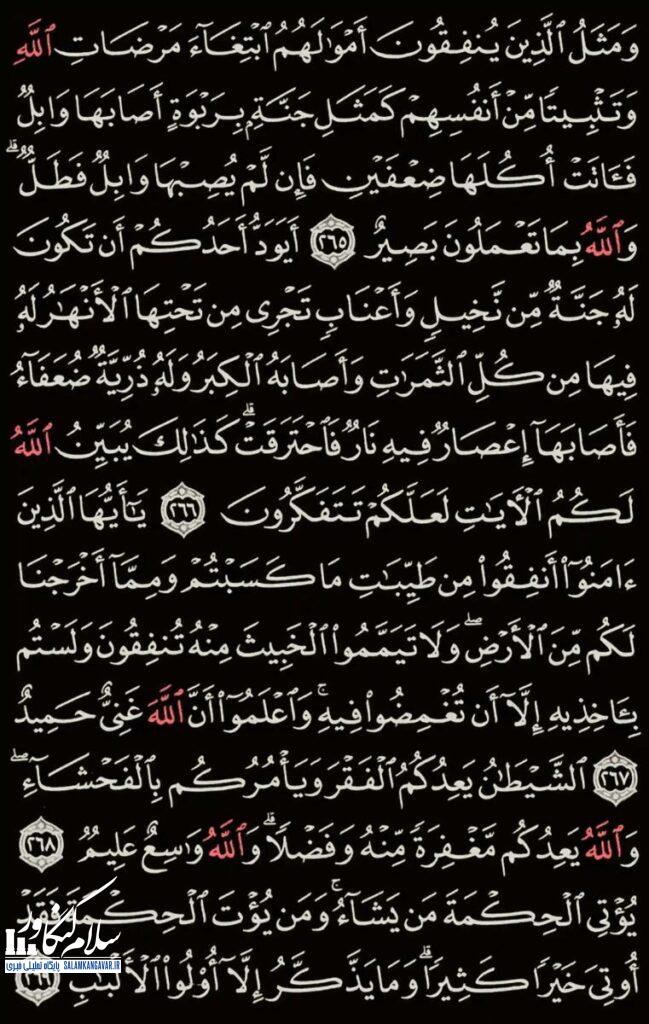 وَمَثَلُ ٱلَّذِينَ يُنفِقُونَ أَمْوَٰلَهُمُ ٱبْتِغَآءَ مَرْضَاتِ ٱللَّهِ
وَتَثْبِيتًا مِّنْ أَنفُسِهِمْ كَمَثَلِ جَنَّةٍۭ بِرَبْوَةٍ أَصَابَهَا وَابِلٌ
فَـَٔاتَتْ أُكُلَهَا ضِعْفَيْنِ فَإِن لَّمْ يُصِبْهَا وَابِلٌ فَطَلٌّ ۗ
وَٱللَّهُ بِمَا تَعْمَلُونَ بَصِيرٌ ٢٦٥ أَيَوَدُّ أَحَدُكُمْ أَن تَكُونَ
لَهُۥ جَنَّةٌ مِّن نَّخِيلٍ وَأَعْنَابٍ تَجْرِى مِن تَحْتِهَا ٱلْأَنْهَٰرُ لَهُۥ
فِيهَا مِن كُلِّ ٱلثَّمَرَٰتِ وَأَصَابَهُ ٱلْكِبَرُ وَلَهُۥ ذُرِّيَّةٌ ضُعَفَآءُ
فَأَصَابَهَآ إِعْصَارٌ فِيهِ نَارٌ فَٱحْتَرَقَتْ ۗ كَذَٰلِكَ يُبَيِّنُ ٱللَّهُ
لَكُمُ ٱلْـَٔايَٰتِ لَعَلَّكُمْ تَتَفَكَّرُونَ ٢٦٦ يَٰٓأَيُّهَا ٱلَّذِينَ
ءَامَنُوٓا۟ أَنفِقُوا۟ مِن طَيِّبَٰتِ مَا كَسَبْتُمْ وَمِمَّآ أَخْرَجْنَا
لَكُم مِّنَ ٱلْأَرْضِ ۖ وَلَا تَيَمَّمُوا۟ ٱلْخَبِيثَ مِنْهُ تُنفِقُونَ وَلَسْتُم
بِـَٔاخِذِيهِ إِلَّآ أَن تُغْمِضُوا۟ فِيهِ ۚ وَٱعْلَمُوٓا۟ أَنَّ ٱللَّهَ غَنِىٌّ حَمِيدٌ
٢٦٧ ٱلشَّيْطَٰنُ يَعِدُكُمُ ٱلْفَقْرَ وَيَأْمُرُكُم بِٱلْفَحْشَآءِ ۖ
وَٱللَّهُ يَعِدُكُم مَّغْفِرَةً مِّنْهُ وَفَضْلًا ۗ وَٱللَّهُ وَٰسِعٌ عَلِيمٌ ٢٦٨
يُؤْتِى ٱلْحِكْمَةَ مَن يَشَآءُ ۚ وَمَن يُؤْتَ ٱلْحِكْمَةَ فَقَدْ
أُوتِىَ خَيْرًا كَثِيرًا ۗ وَمَا يَذَّكَّرُ إِلَّآ أُو۟لُوا۟ ٱلْأَلْبَٰبِ ٢٦٩
سلام کنگاور
پایگاه تحلیلی خبری SALAMKANGAVAR.IR